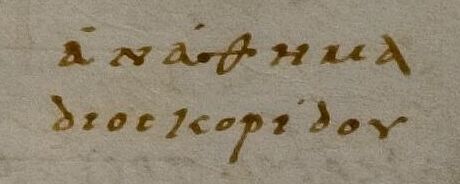 ἀνάθημα
διοσκορίδου